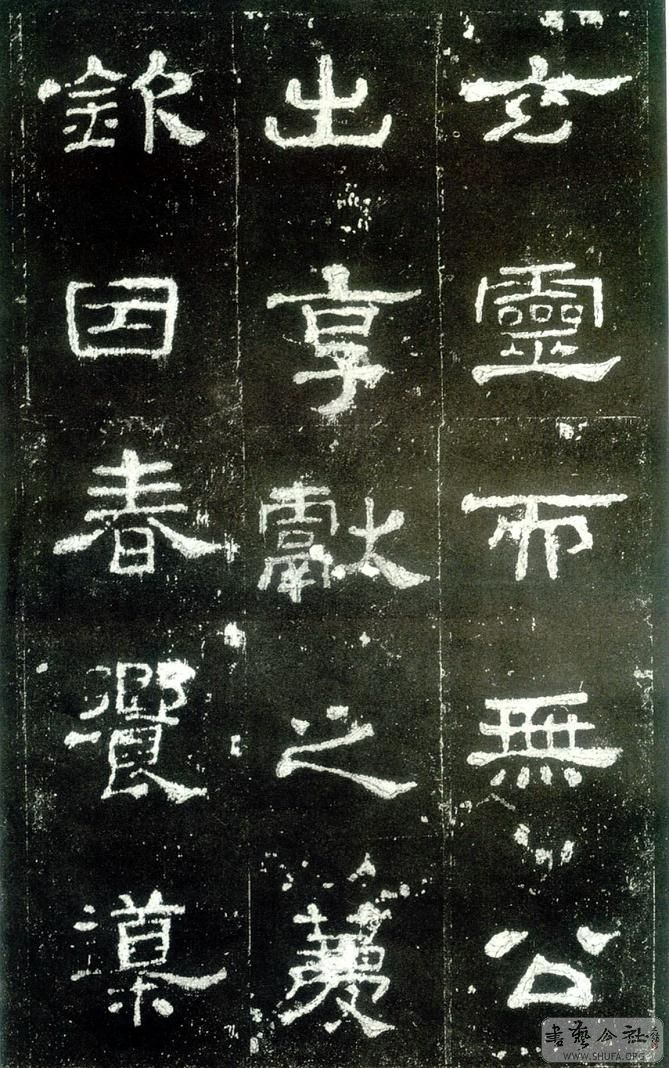 玄靈而無公
出享獻之薦
欽因春饗導
書藝公社
WWW.SHUFA.ORG